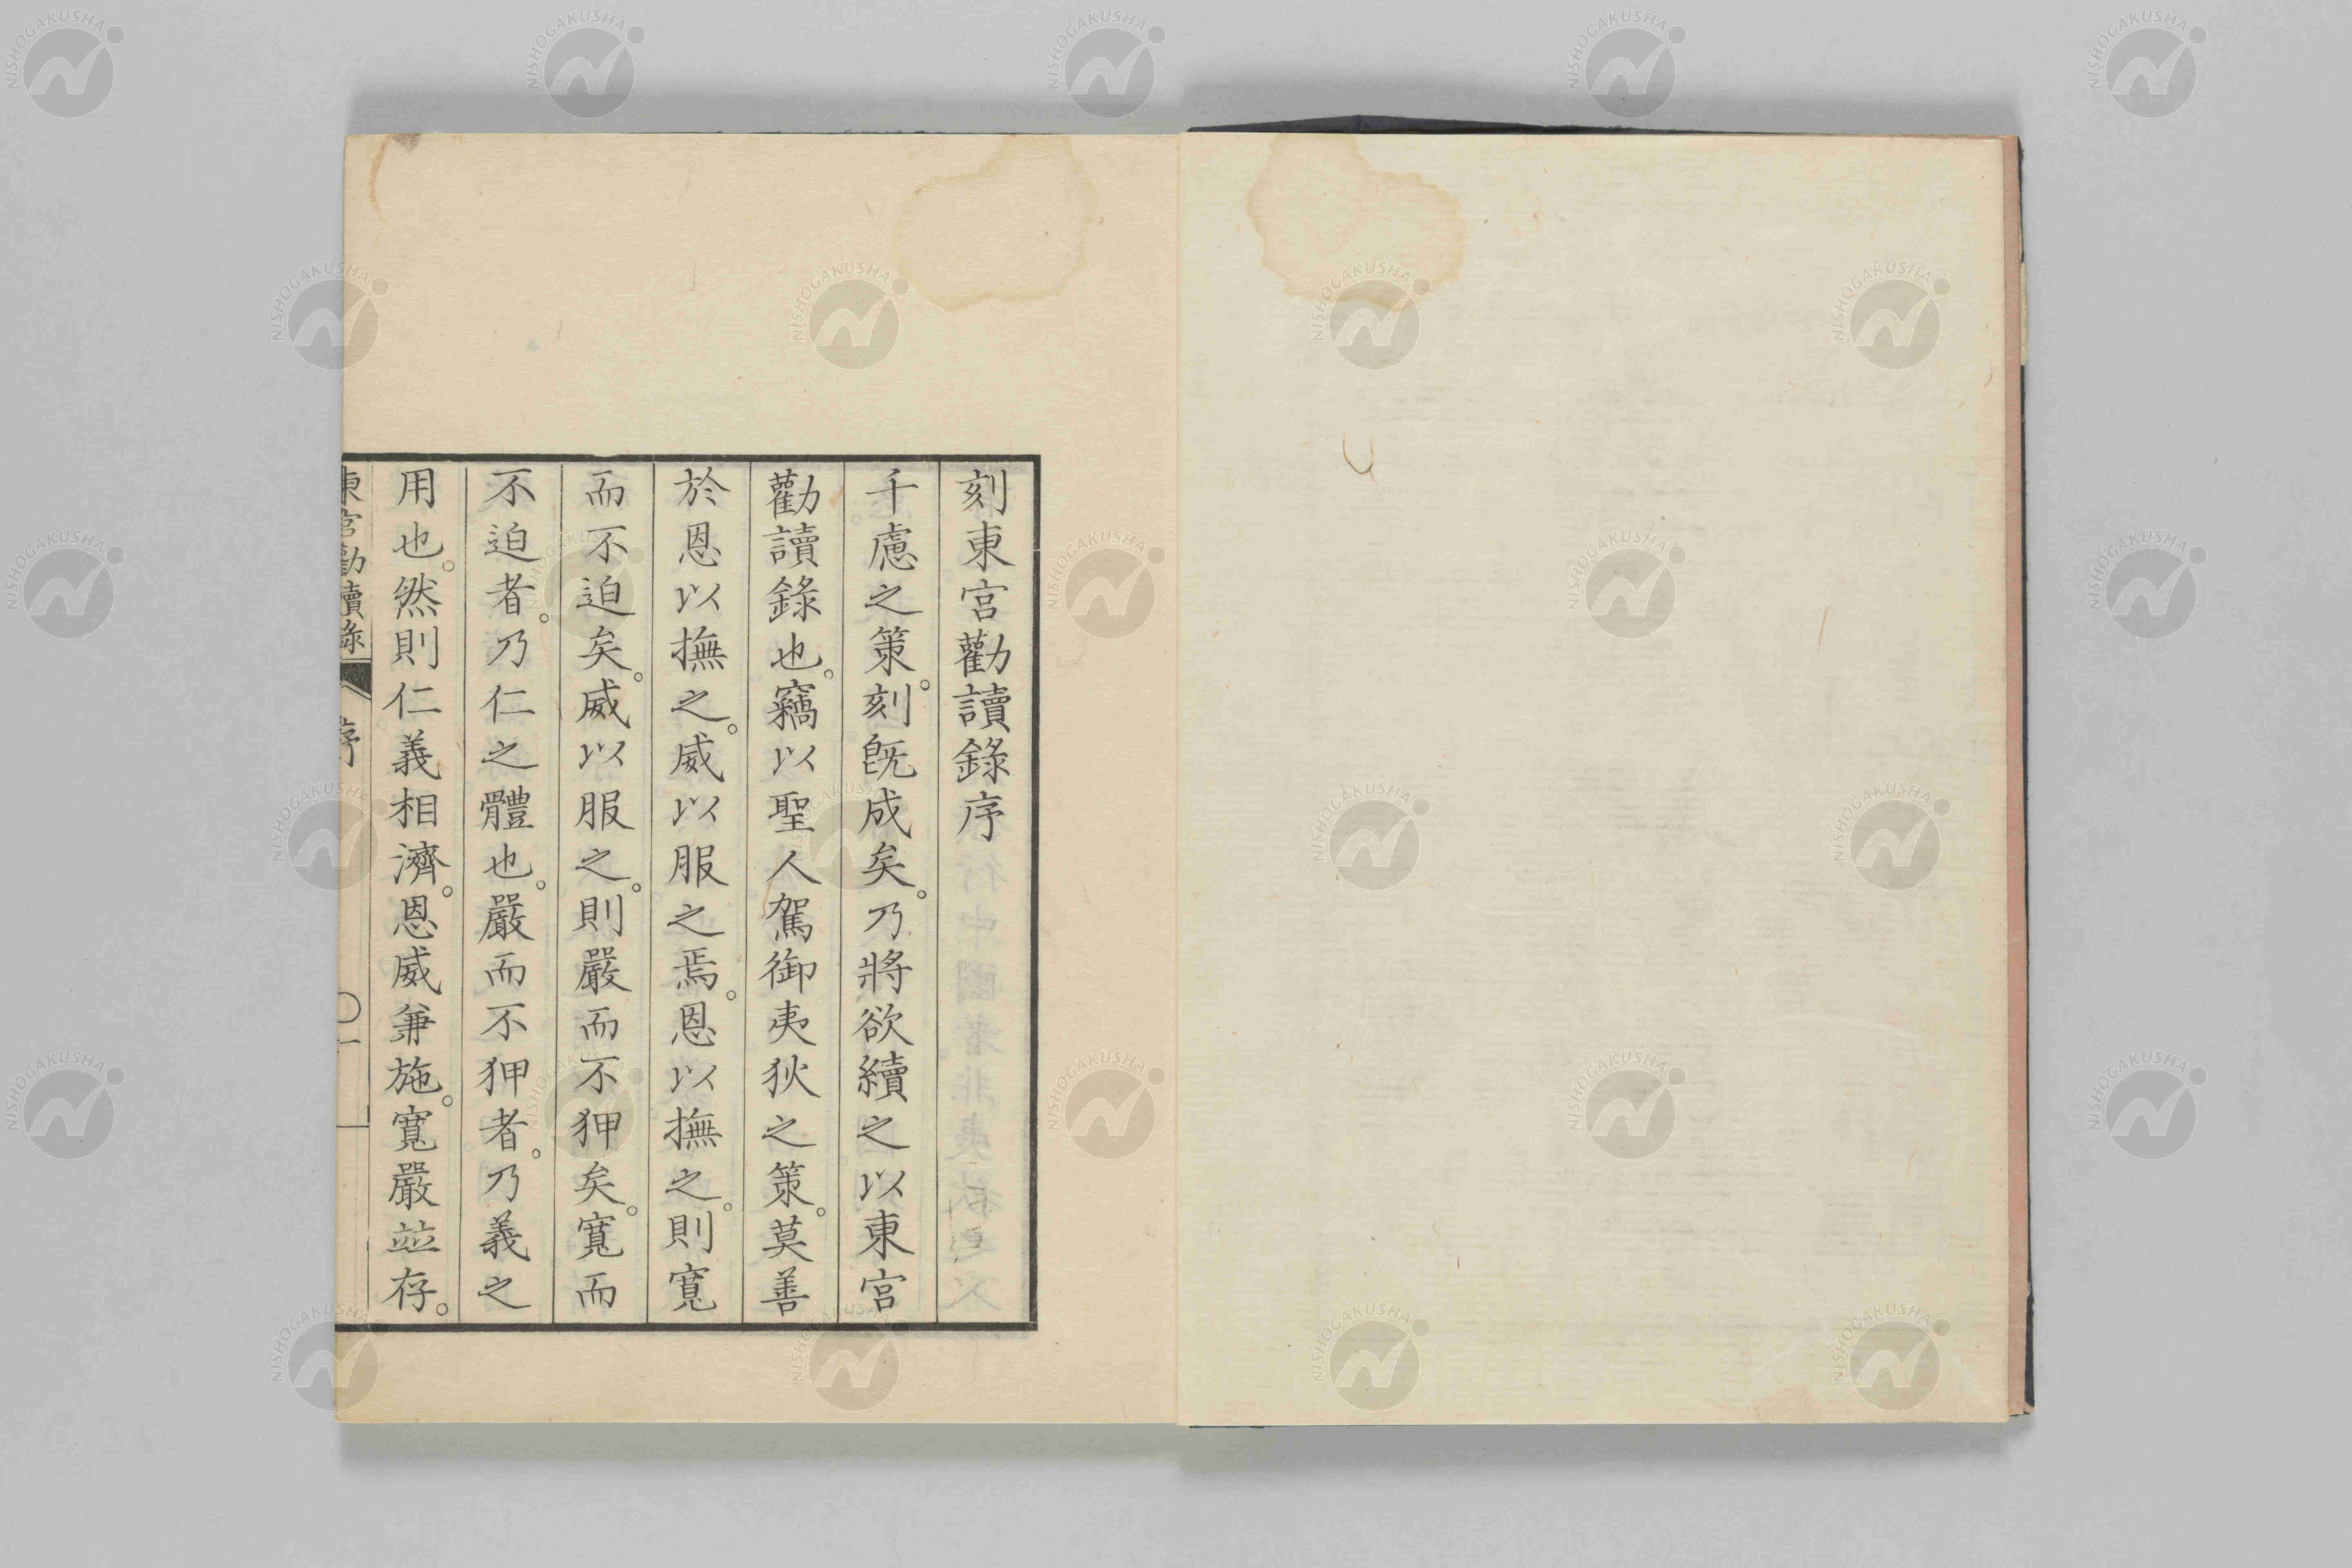 刻東宮勸讀錄序
千慮之策。刻旣成矣。乃將欲續之以東宮
勸讀錄也。竊以聖人駕御夷狄之策。莫善
於恩以撫之。威以服之焉。恩以撫之。則寬
而不迫矣。威以服之。則嚴而不狎矣。寬而
不迫者。乃仁之體也。嚴而不狎者。乃義之
用也。然則仁義相濟。恩威兼施。寬嚴並存。
東宮勸讀錄 序 〇一
NISHOGAKUSHA